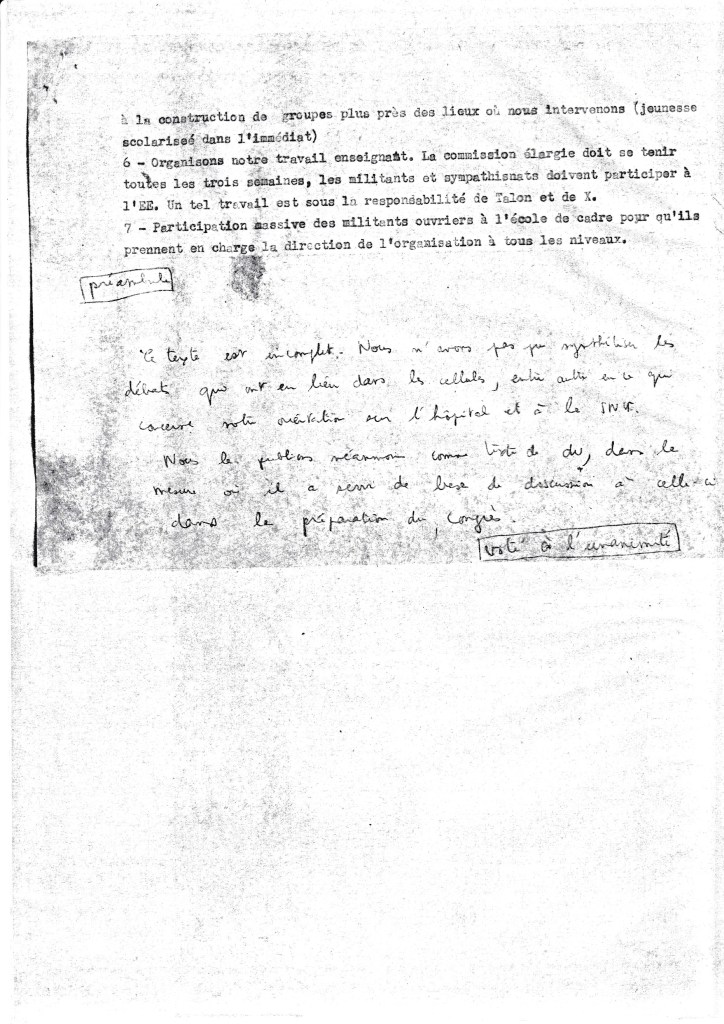 à la construction de groupes plus près des lieux où nous intervenons (jeunesse
scolariseé dans l'immédiat)
6 - Organisons notre travail enseignant. La commission élargie doit se tenir
toutes les trois semaines, les militants et sympathisnats doivent participer à
l'EE. Un tel travail est sous la responsabilité de Talon et de X.
7 - Participation massive des militants ouvriers à l'école de cadre pour qu'ils
prennent en charge la direction de l'organisation à tous les niveaux.
préambule
Ce texte est incomplet. Nous n'avons pas pu synthétiser les
débats qui ont eu lieu dans les cellules, entre autre en ce qui
concerne notre orientation sur l'hôpital et à la SNCF.
Nous le publions néanmoins comme texte de du, dans la
mesure où il a servi de base de discussion à celle-ci
dans la préparation du congrès.
voté à l'unanimité